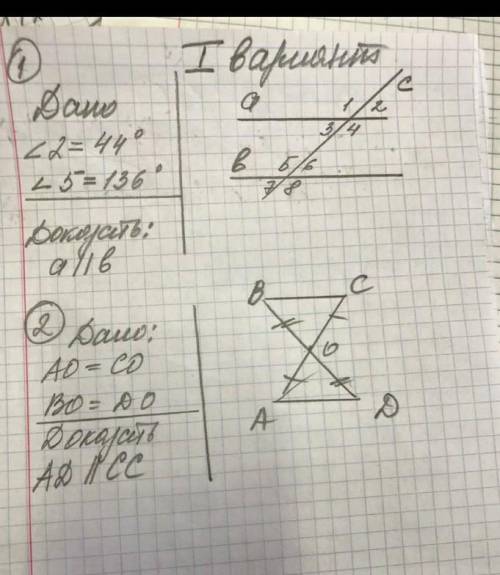 1
I вариант
Дано
∠2 = 44°
∠5 = 136°
Доказать:
a || b
a 1 2 c
3 4
b 5 6
7 8
2 Дано:
AO = CO
BO = DO
Доказать
AD || CC
B C
O
A D